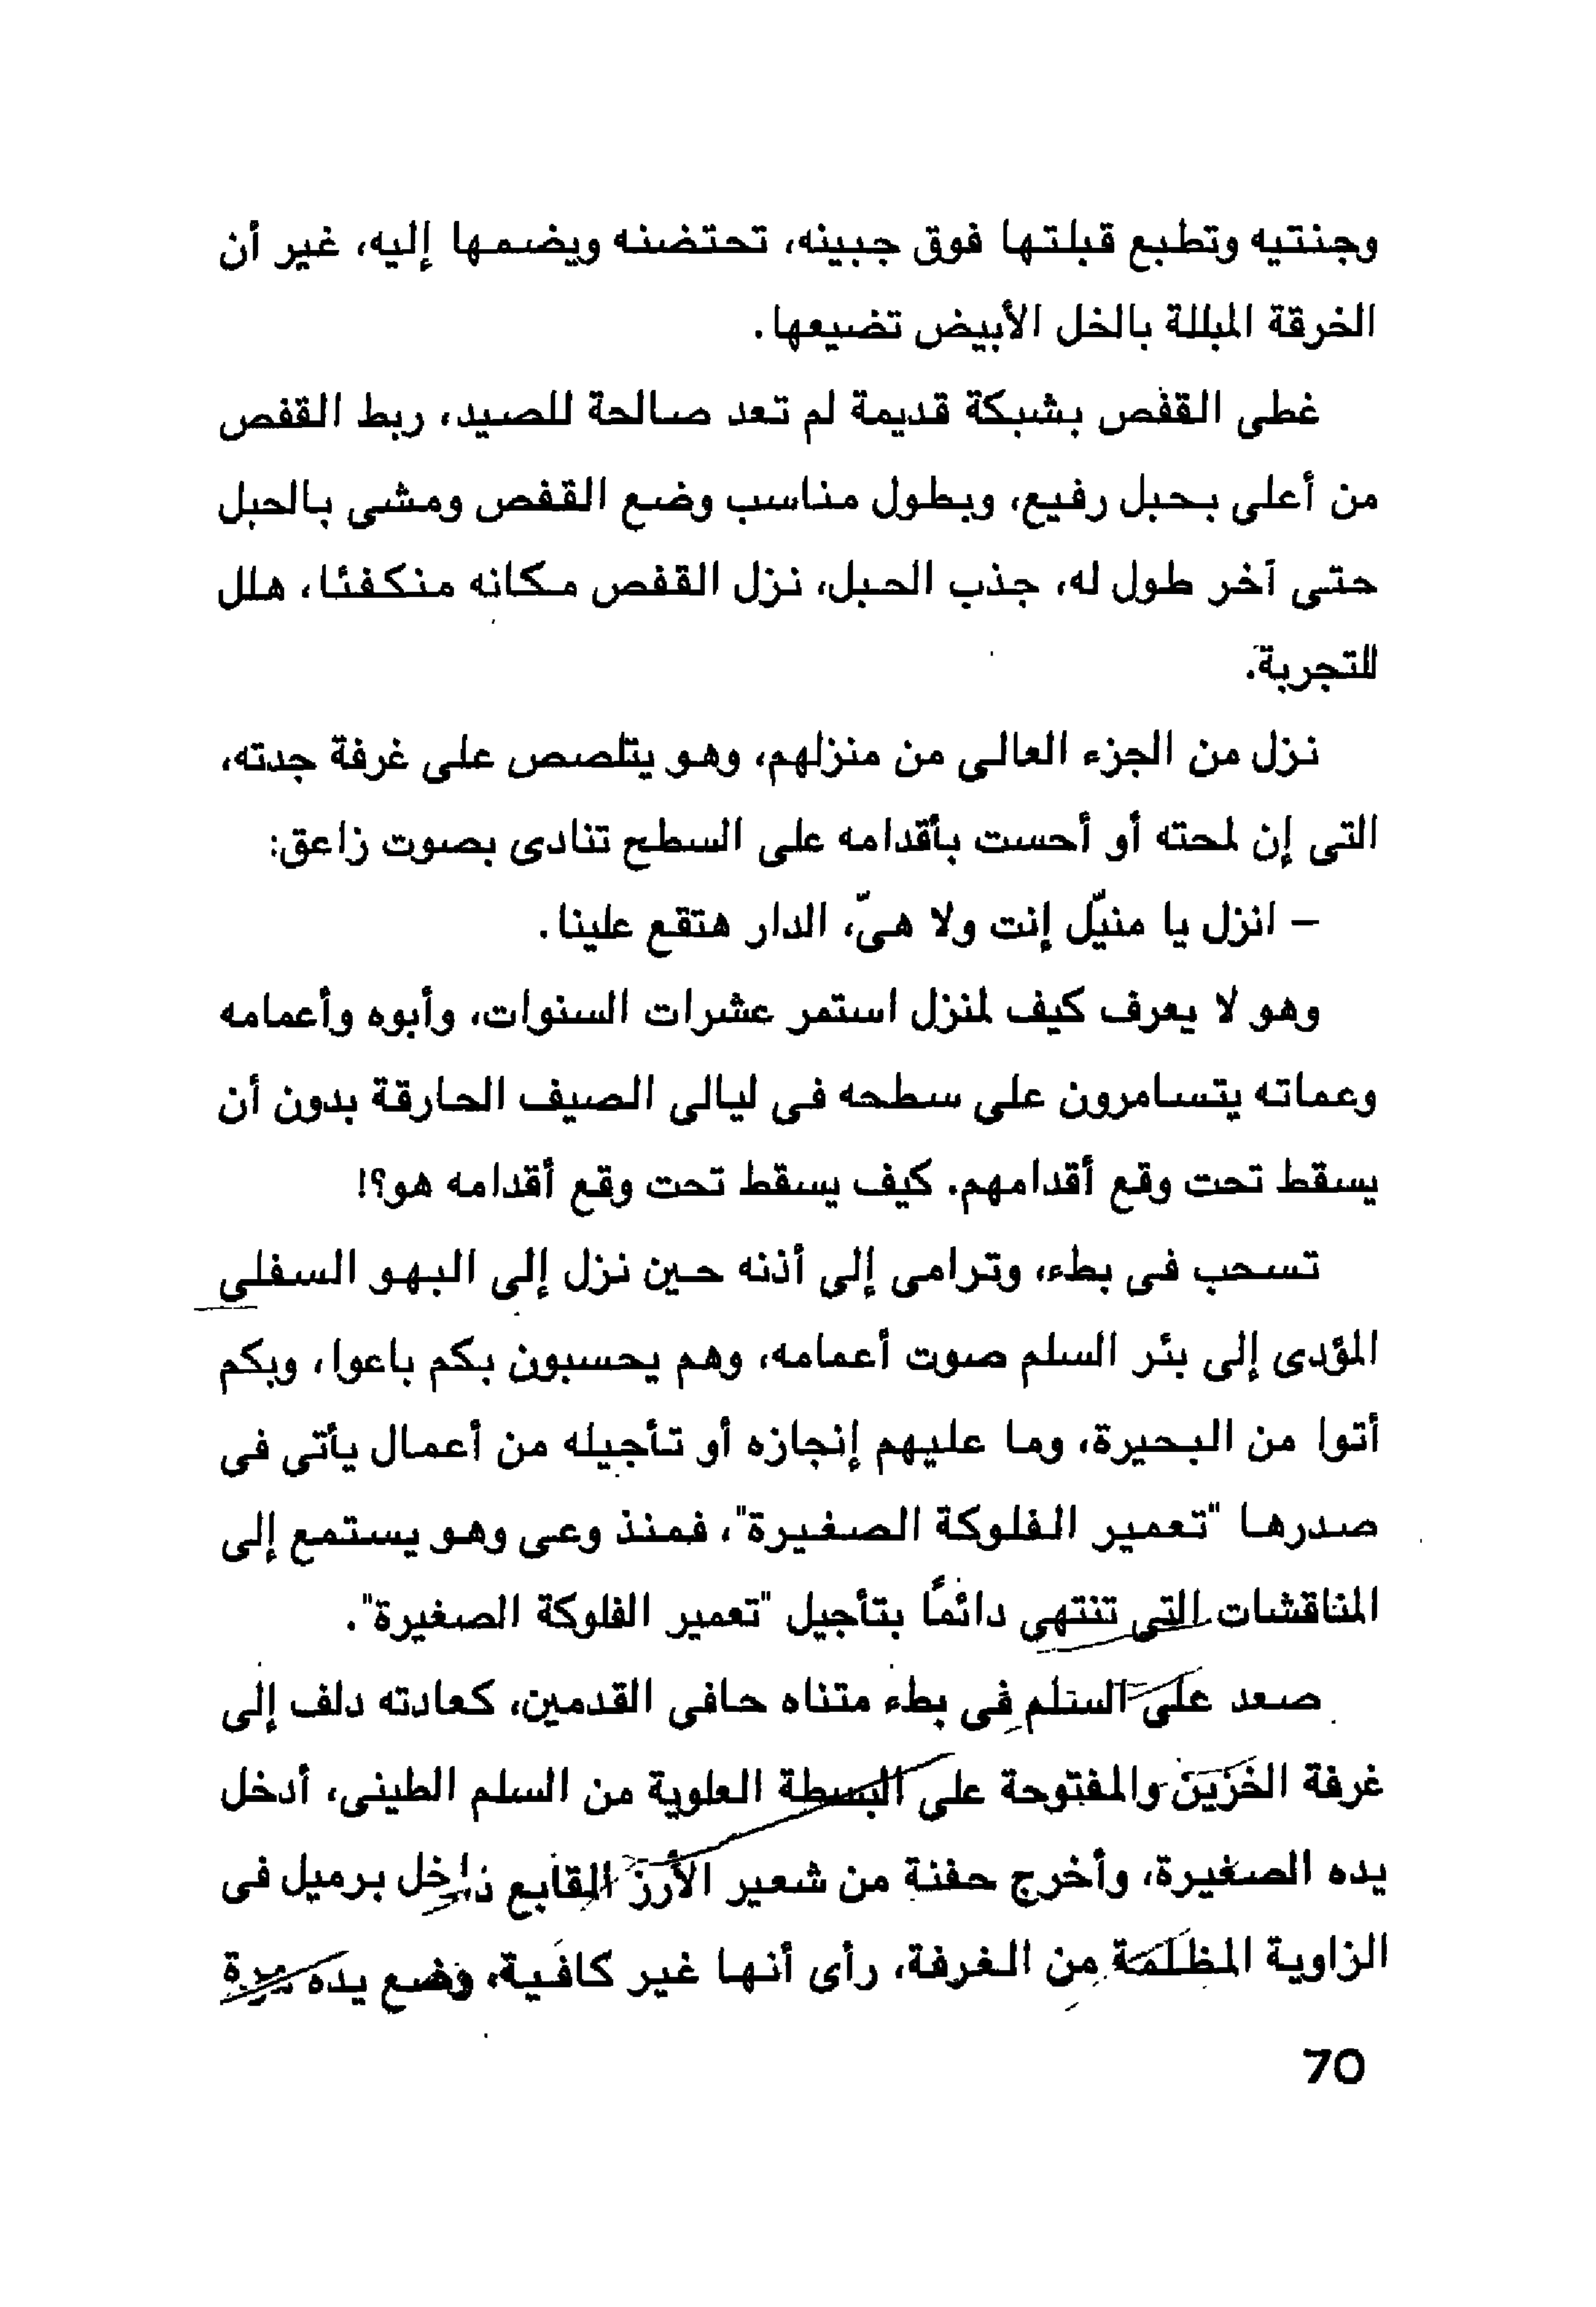 وجنتيه وتطبع قبلتها فوق جبينه، تحتضنه ويضمها إليه، غير أن
الخرقة المبللة بالخل الأبيض تضيعها.
غطى القفص بشبكة قديمة لم تعد صالحة للصيد، ربط القفص
من أعلى بحبل رفيع، وبطول مناسب وضع القفص ومشى بالحبل
حتى آخر طول له، جذب الحبل، نزل القفص مكانه منكفئا، هلل
للتجربة.
نزل من الجزء العالى من منزلهم، وهو يتلصص على غرفة جدته،
التى إن لمحته أو أحست بأقدامه على السطح تنادى بصوت زاعق:
– انزل يا منيّل إنت ولا هىّ، الدار هتقع علينا.
وهو لا يعرف كيف لمنزل استمر عشرات السنوات، وأبوه وأعمامه
وعماته يتسامرون على سطحه فى ليالى الصيف الحارقة بدون أن
يسقط تحت وقع أقدامهم. كيف يسقط تحت وقع أقدامه هو؟!
تسحب فى بطء، وترامى إلى أذنه حين نزل إلى البهو السفلى
المؤدى إلى بئر السلم صوت أعمامه، وهم يحسبون بكم باعوا، وبكم
أتوا من البحيرة، وما عليهم إنجازه أو تأجيله من أعمال يأتى فى
صدرها "تعمير الفلوكة الصغيرة"، فمنذ وعى وهو يستمع إلى
المناقشات التى تنتهى دائمًا بتأجيل "تعمير الفلوكة الصغيرة".
صعد على السلم فى بطء متناه حافى القدمين، كعادته دلف إلى
غرفة الخزين والمفتوحة على البسطة العلوية من السلم الطينى، أدخل
يده الصغيرة، وأخرج حفنة من شعير الأرز القابع داخل برميل فى
الزاوية المظلمة من الغرفة، رأى أنها غير كافية، وضع يده مرة
70